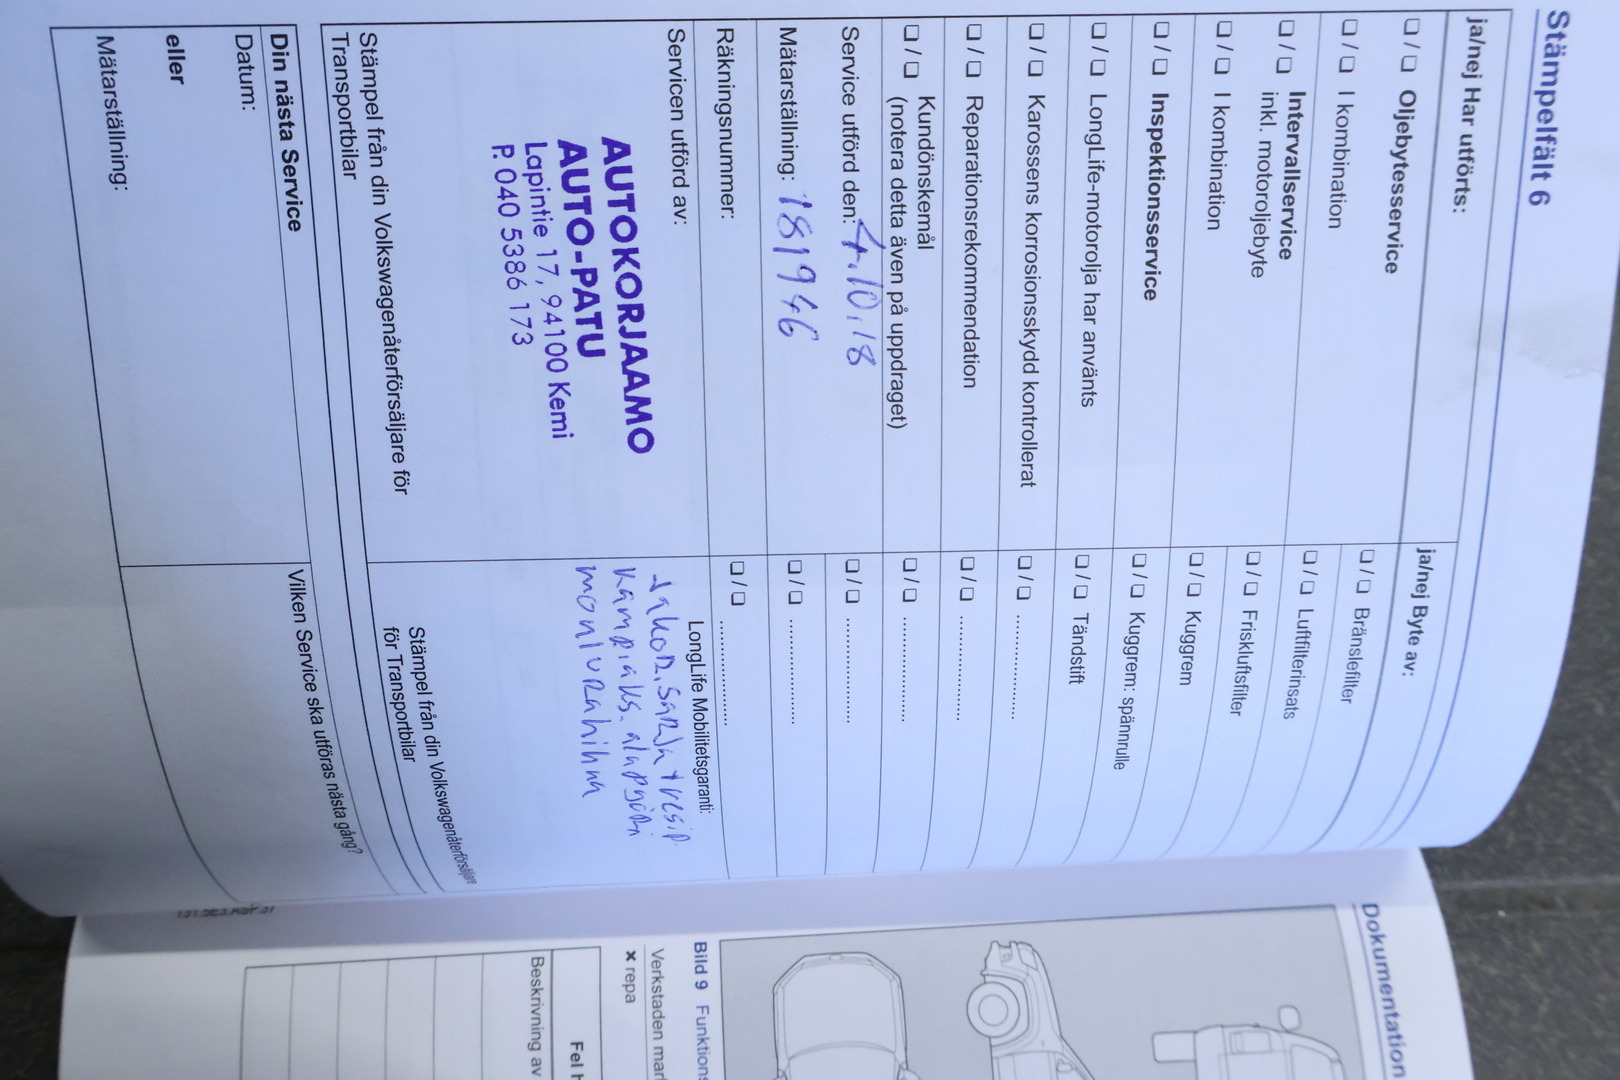 Stämpelfält 6
ja/nej Har utförts:
❏ / ❏ Oljebytesservice
❏ / ❏ I kombination
❏ / ❏ Intervallservice
inkl. motoroljebyte
❏ / ❏ I kombination
❏ / ❏ Inspektionsservice
❏ / ❏ LongLife-motorolja har använts
❏ / ❏ Karossens korrosionsskydd kontrollerat
❏ / ❏ Reparationsrekommendation
❏ / ❏ Kundönskemål
(notera detta även på uppdraget)
Service utförd den: 4.10.18
Mätarställning:
Räkningsnummer:
Servicen utförd av:
AUTOKORJAAMO
AUTO-PATU
Lapintie 17, 94100 Kemi
P. 040 5386 173
Stämpel från din Volkswagenåterförsäljare för
Transportbilar
ja/nej Byte av:
❏ / ❏ Bränslefilter
❏ / ❏ Luftfilterinsats
❏ / ❏ Friskluftsfilter
❏ / ❏ Kuggrem
❏ / ❏ Kuggrem: spännrulle
❏ / ❏ Tändstift
❏ / ❏ ................
❏ / ❏ ................
❏ / ❏ ................
❏ / ❏ ................
❏ / ❏ ................
❏ / ❏ ................
LongLife Mobilitetsgaranti:
Jakop.sarja + vesip.
kampiaks. alapyörä
moniurahihna
Stämpel från din Volkswagenåterförsäljare
för Transportbilar
Din nästa Service
Datum:
eller
Mätarställning:
Vilken Service ska utföras nästa gång?
Dokumentation
Bild 9 Funktions
Verkstaden mar
✗ repa
Fel H
Beskrivning av